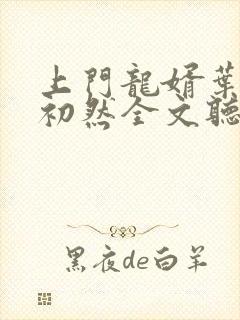 上門龍婿葉
初然全文聽
黑夜de白羊